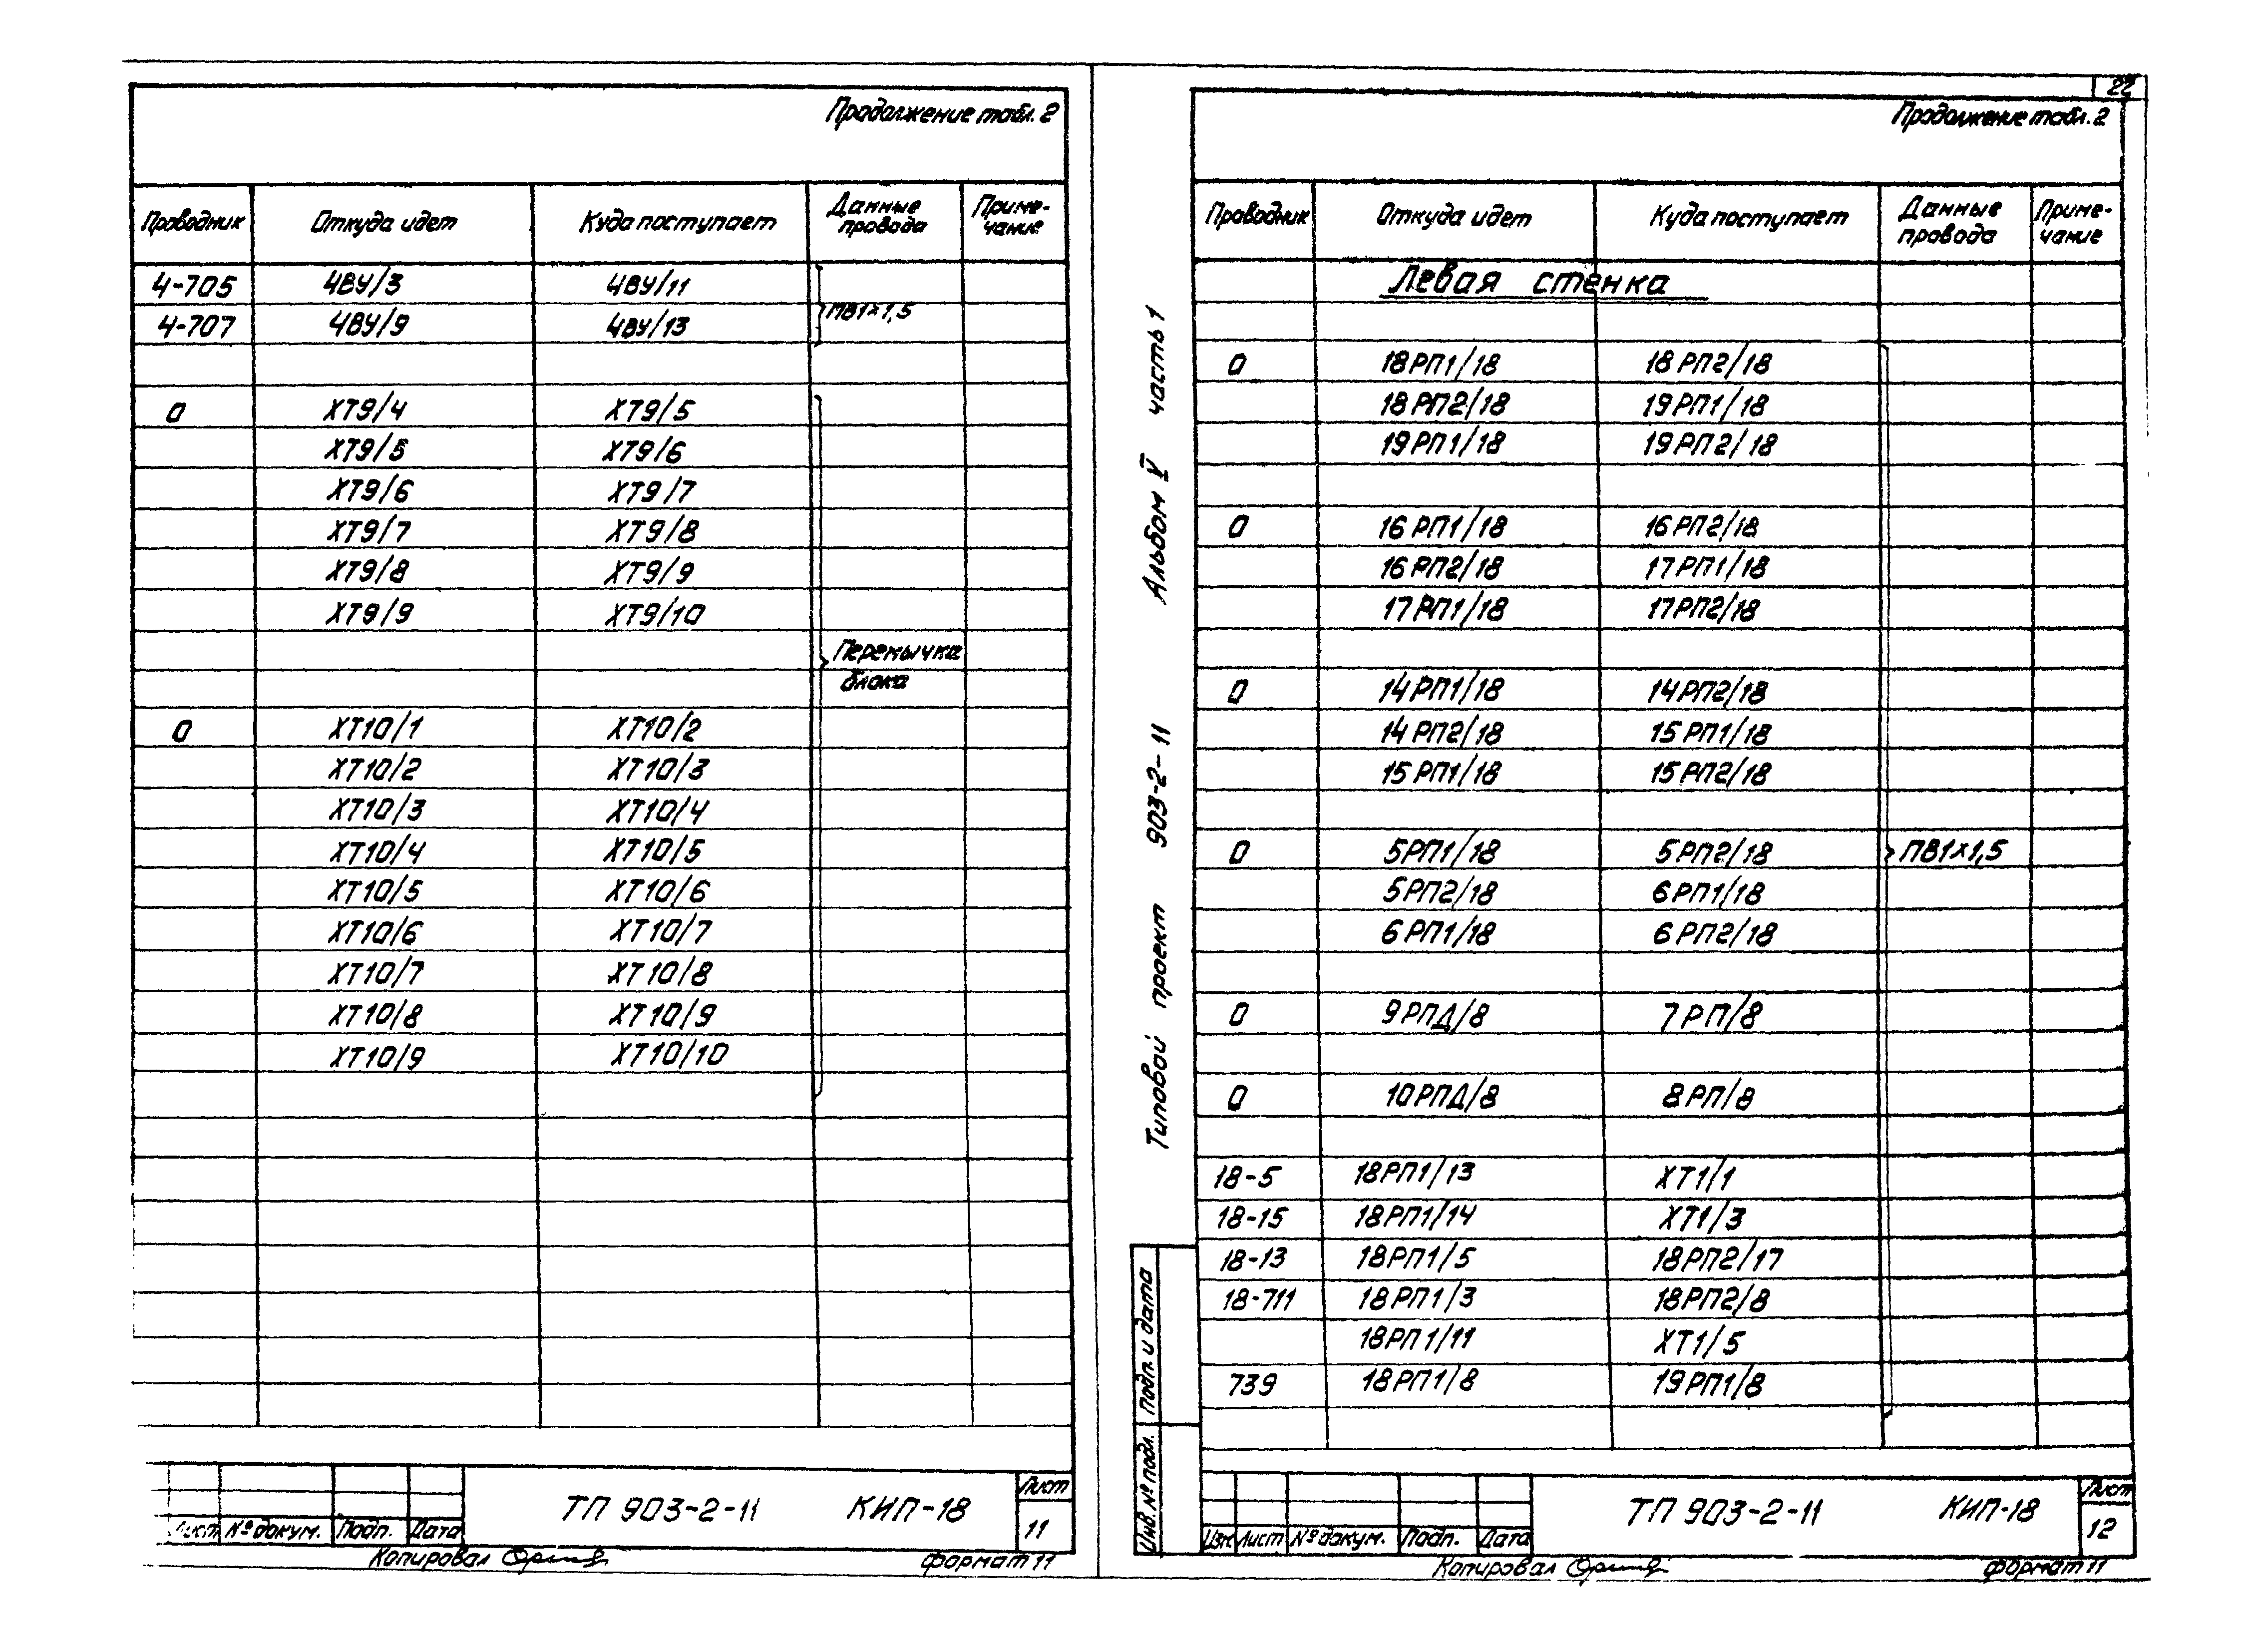 Продолжение табл. 2
Проводник Откуда идет Куда поступает Данные провода Приме-чание
4-705 4ВУ/3 4ВУ/11
ПВ1×1,5
4-707 4ВУ/9 4ВУ/13
0 ХТ9/4 ХТ9/5
ХТ9/5 ХТ9/6
ХТ9/6 ХТ9/7
ХТ9/7 ХТ9/8
ХТ9/8 ХТ9/9
ХТ9/9 ХТ9/10
Перемычка
блока
0 ХТ10/1 ХТ10/2
ХТ10/2 ХТ10/3
ХТ10/3 ХТ10/4
ХТ10/4 ХТ10/5
ХТ10/5 ХТ10/6
ХТ10/6 ХТ10/7
ХТ10/7 ХТ10/8
ХТ10/8 ХТ10/9
ХТ10/9 ХТ10/10
Лист № докум. Подп. Дата
ТП 903-2-11 КИП-18
Лист
11
Копировал
формат 11
22
Продолжение табл. 2
Типовой проект 903-2-11 Альбом V часть 1
Проводник Откуда идет Куда поступает Данные провода Приме-чание
Левая стенка
0 18РП1/18 18РП2/18
18РП2/18 19РП1/18
19РП1/18 19РП2/18
0 16РП1/18 16РП2/18
16РП2/18 17РП1/18
17РП1/18 17РП2/18
0 14РП1/18 14РП2/18
14РП2/18 15РП1/18
15РП1/18 15РП2/18
0 5РП1/18 5РП2/18 ПВ1×1,5
5РП2/18 6РП1/18
6РП1/18 6РП2/18
0 9РПД/8 7РП/8
0 10РПД/8 8РП/8
18-5 18РП1/13 ХТ1/1
18-15 18РП1/14 ХТ1/3
18-13 18РП1/5 18РП2/17
18-711 18РП1/3 18РП2/8
18РП1/11 ХТ1/5
739 18РП1/8 19РП1/8
Подп. и дата
Инв. № подл.
Изм. Лист № докум. Подп. Дата
ТП 903-2-11 КИП-18
Лист
12
Копировал
формат 11